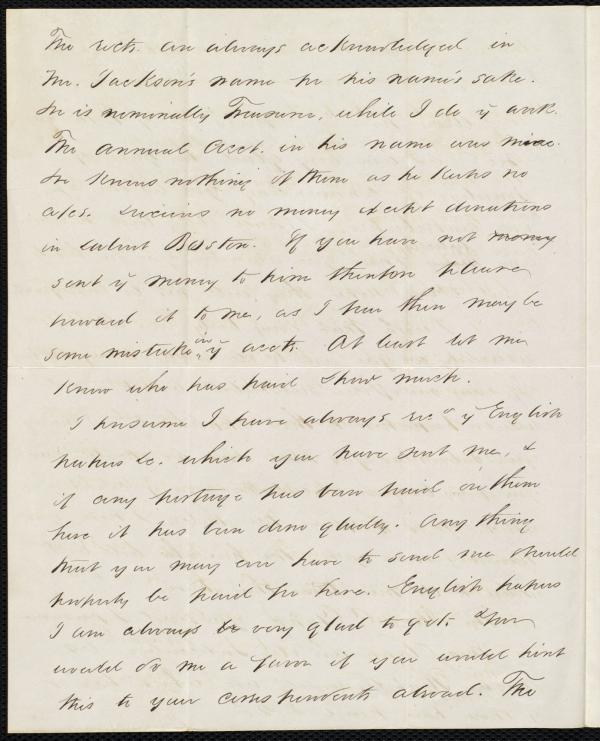 The rcts. are always acknowledged in
Mr. Jackson's name for his name's sake.
He is nominally Treasurer, while I do ye work.
The annual acct. in his name was mine.
He knows nothing of them as he keeps no
a/cs. & receives no money except donations
in & about Boston. If you have not money
sent ye money to him therefore please
forward it to me, as I fear there may be
some mistake in ye accts. At least let me
know who has paid & how much.
I presume I have always recd ye English
papers &c. which you have sent me, &
if any postage has been paid on them
here it has been done gladly. Any thing
that you may ever have to send me should
properly be paid for here. English papers
I am always be very glad to get. & you
would do me a favor if you would hint
this to your correspondents abroad. The